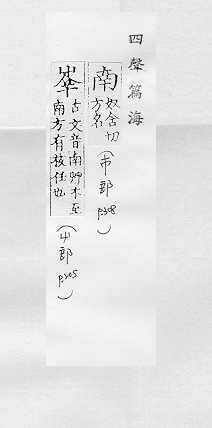 四聲篇海
南 奴含切
方名
(巿部
p308)
古文音南艸木至
南方有枝任也
(屮部
p305)